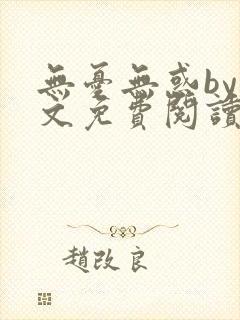 無憂無惑by
文免費閱讀
趙改良